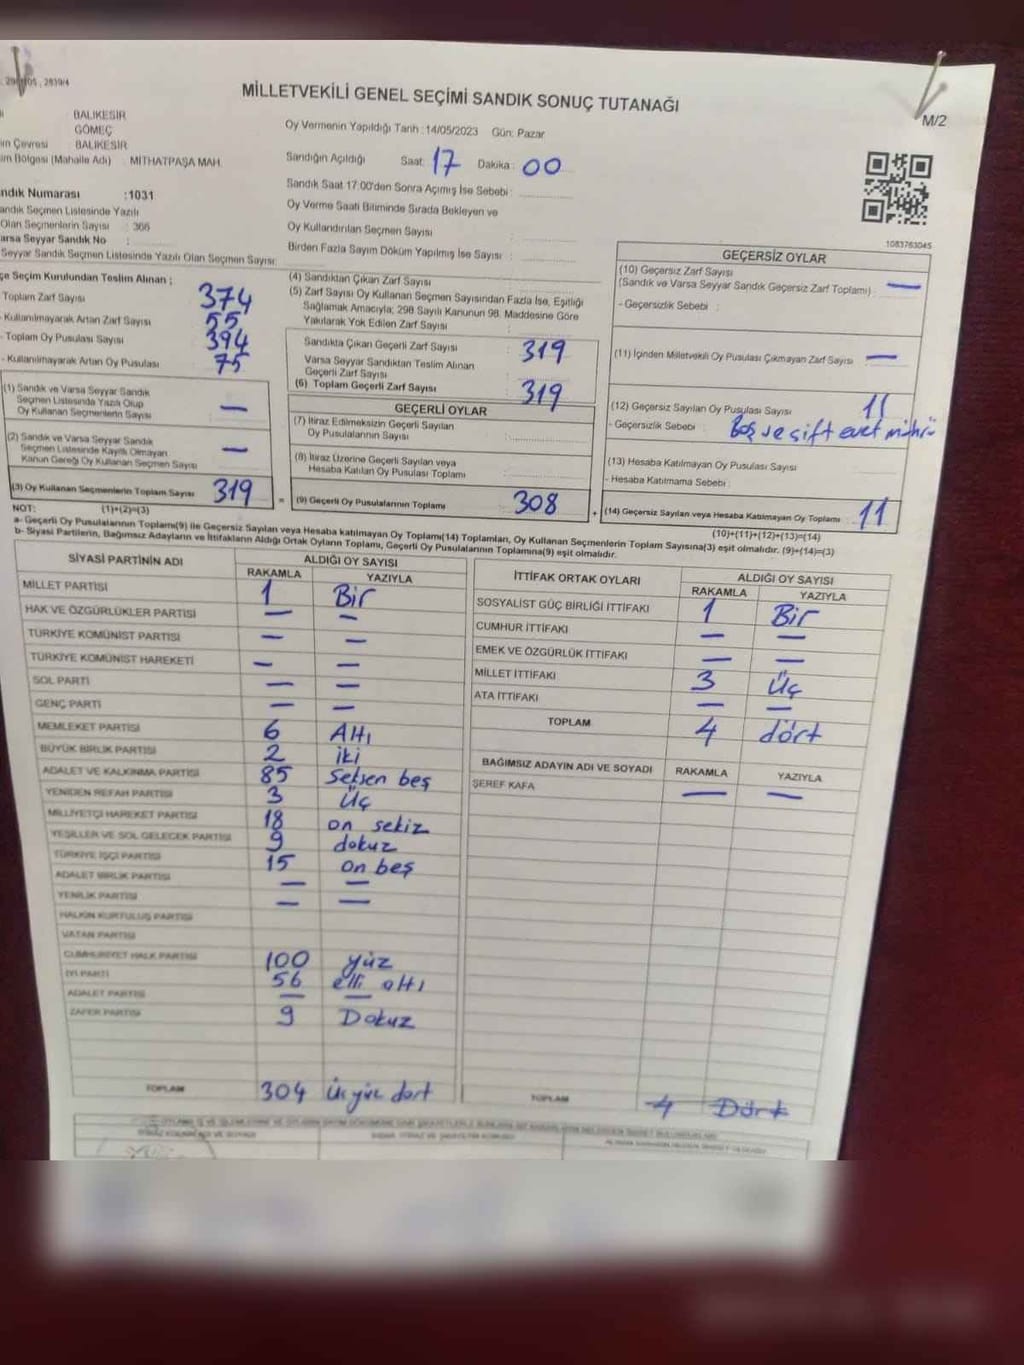 MİLLETVEKİLİ GENEL SEÇİMİ SANDIK SONUÇ TUTANAĞI
M/2
BALIKESİR
GÖMEÇ
BALIKESİR
(Mahalle Adı) : MİTHATPAŞA MAH.
Oy Vermenin Yapıldığı Tarih :14/05/2023 Gün: Pazar
Sandığın Açıldığı Saat: 17 Dakika : 00
Sandık Saat 17:00'den Sonra Açımış İse Sebebi :
Oy Verme Saati Bitiminde Sırada Bekleyen ve
Oy Kullandırılan Seçmen Sayısı :
Birden Fazla Sayım Döküm Yapılmış İse Sayısı :
Numarası :1031
Seçmen Listesinde Yazılı
Olan Seçmenlerin Sayısı : 366
Varsa Seyyar Sandık No :
Seyyar Sandık Seçmen Listesinde Yazılı Olan Seçmen Sayısı:
1083763045
Seçim Kurulundan Teslim Alınan ;
Toplam Zarf Sayısı 374
Kullanılmayarak Artan Zarf Sayısı 55
Toplam Oy Pusulası Sayısı 394
Kullanılmayarak Artan Oy Pusulası 75
(1) Sandık ve Varsa Seyyar Sandık
Seçmen Listesinde Yazılı Olup
Oy Kullanan Seçmenlerin Sayısı : —
(2) Sandık ve Varsa Seyyar Sandık
Seçmen Listesinde Kayıtlı Olmayan
Kanun Gereği Oy Kullanan Seçmen Sayısı —
(3) Oy Kullanan Seçmenlerin Toplam Sayısı 319
(4) Sandıktan Çıkan Zarf Sayısı :
(5) Zarf Sayısı Oy Kullanan Seçmen Sayısından Fazla İse, Eşitliği
Sağlamak Amacıyla; 298 Sayılı Kanunun 98. Maddesine Göre
Yakılarak Yok Edilen Zarf Sayısı :
Sandıkta Çıkan Geçerli Zarf Sayısı : 319
Varsa Seyyar Sandıktan Teslim Alınan
Geçerli Zarf Sayısı :
(6) Toplam Geçerli Zarf Sayısı : 319
GEÇERLİ OYLAR
(7) İtiraz Edilmeksizin Geçerli Sayılan
Oy Pusulalarının Sayısı :
(8) İtiraz Üzerine Geçerli Sayılan veya
Hesaba Katılan Oy Pusulası Toplamı :
= (9) Geçerli Oy Pusulalarının Toplamı : 308 +
GEÇERSİZ OYLAR
(10) Geçersiz Zarf Sayısı
(Sandık ve Varsa Seyyar Sandık Geçersiz Zarf Toplamı) : —
- Geçersizlik Sebebi :
(11) İçinden Milletvekili Oy Pusulası Çıkmayan Zarf Sayısı : —
(12) Geçersiz Sayılan Oy Pusulası Sayısı : 11
- Geçersizlik Sebebi : Boş ve çift evet
(13) Hesaba Katılmayan Oy Pusulası Sayısı :
- Hesaba Katılmama Sebebi :
(14) Geçersiz Sayılan veya Hesaba Katılmayan Oy Toplamı : 11
NOT: (1)+(2)=(3) (10)+(11)+(12)+(13)=(14)
a- Geçerli Oy Pusulalarının Toplamı(9) ile Geçersiz Sayılan veya Hesaba katılmayan Oy Toplamı(14) Toplamları, Oy Kullanan Seçmenlerin Toplam Sayısına(3) eşit olmalıdır. (9)+(14)=(3)
b- Siyasi Partilerin, Bağımsız Adayların ve İttifakların Aldığı Ortak Oyların Toplamı, Geçerli Oy Pusulalarının Toplamına(9) eşit olmalıdır.
SİYASİ PARTİNİN ADI ALDIĞI OY SAYISI
RAKAMLA YAZIYLA
MİLLET PARTİSİ 1 Bir
HAK VE ÖZGÜRLÜKLER PARTİSİ — —
TÜRKİYE KOMÜNİST PARTİSİ — —
TÜRKİYE KOMÜNİST HAREKETİ — —
SOL PARTİ — —
GENÇ PARTİ — —
MEMLEKET PARTİSİ 6 Altı
BÜYÜK BİRLİK PARTİSİ 2 iki
ADALET VE KALKINMA PARTİSİ 85 Seksen beş
YENİDEN REFAH PARTİSİ 3 Üç
MİLLİYETÇİ HAREKET PARTİSİ 18 on sekiz
YEŞİLLER VE SOL GELECEK PARTİSİ 9 dokuz
TÜRKİYE İŞÇİ PARTİSİ 15 on beş
ADALET BİRLİK PARTİSİ — —
YENİLİK PARTİSİ — —
HALKIN KURTULUŞ PARTİSİ
VATAN PARTİSİ
CUMHURİYET HALK PARTİSİ 100 yüz
İYİ PARTİ 56 elli altı
ADALET PARTİSİ — —
ZAFER PARTİSİ 9 Dokuz
TOPLAM 304 Üçyüz dört
İTTİFAK ORTAK OYLARI ALDIĞI OY SAYISI
RAKAMLA YAZIYLA
SOSYALİST GÜÇ BİRLİĞİ İTTİFAKI 1 Bir
CUMHUR İTTİFAKI — —
EMEK VE ÖZGÜRLÜK İTTİFAKI — —
MİLLET İTTİFAKI 3 Üç
ATA İTTİFAKI — —
TOPLAM 4 dört
BAĞIMSIZ ADAYIN ADI VE SOYADI RAKAMLA YAZIYLA
ŞEREF KAFA — —
TOPLAM 4 Dört